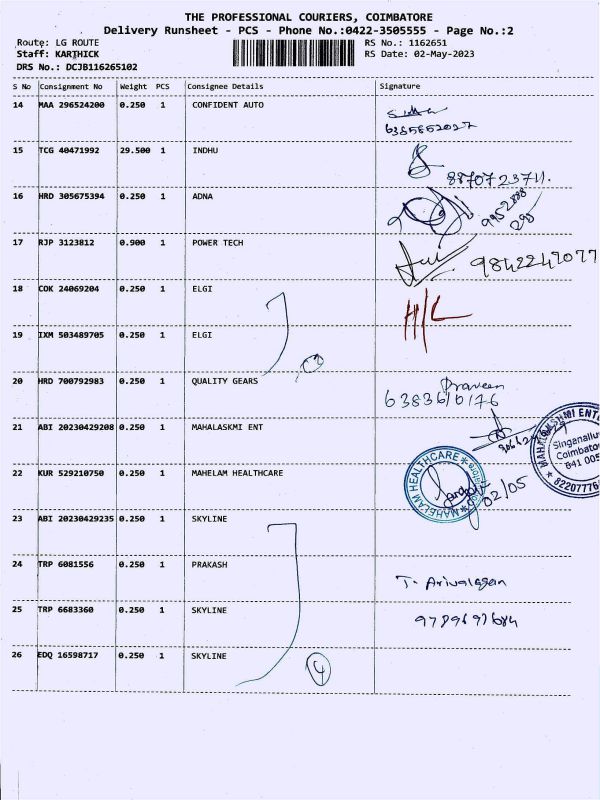 THE PROFESSIONAL COURIERS, COIMBATORE
Delivery Runsheet - PCS - Phone No.:0422-3505555 - Page No.:2
Route: LG ROUTE RS No.: 1162651
Staff: KARTHICK RS Date: 02-May-2023
DRS No.: DCJB116265102
S No Consignment No Weight PCS Consignee Details Signature
14 MAA 296524200 0.250 1 CONFIDENT AUTO
6385852027
15 TCG 40471992 29.500 1 INDHU
8870723711.
16 HRD 305675394 0.250 1 ADNA
17 RJP 3123812 0.900 1 POWER TECH
9842247077
18 COK 24069204 0.250 1 ELGI H/L
19 IXM 503489705 0.250 1 ELGI
20 HRD 700792983 0.250 1 QUALITY GEARS Praveen
6383610176
21 ABI 20230429208 0.250 1 MAHALASKMI ENT
MAHALAKSHMI ENT
Singanallu
Coimbato
641 005
82207776
22 KUR 529210750 0.250 1 MAHELAM HEALTHCARE
MAHELAM HEALTHCARE
02/05
23 ABI 20230429235 0.250 1 SKYLINE
24 TRP 6081556 0.250 1 PRAKASH T. Arivalagan
25 TRP 6683360 0.250 1 SKYLINE 9789697684
26 EDQ 16598717 0.250 1 SKYLINE
4